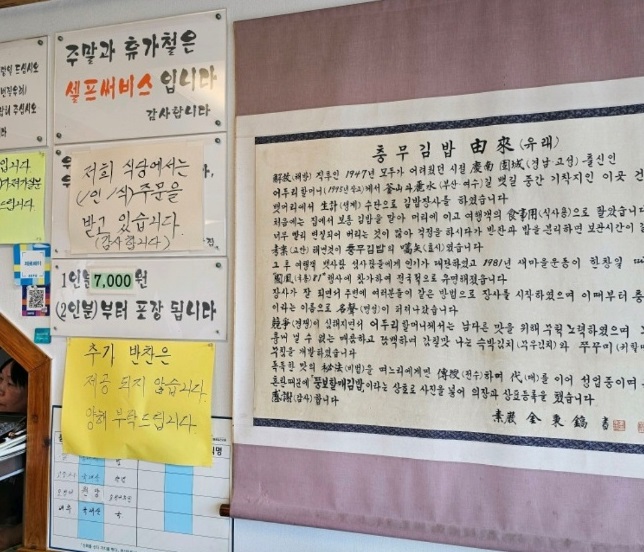 주말과 휴가철은
셀프써비스 입니다
감사합니다
저희 식당에서는
(1인 1식)주문을
받고 있습니다.
(감사합니다)
1인분 7,000원
(2인분)부터 포장 됩니다
추가 반찬은
제공 되지 않습니다.
양해 부탁드립니다.
충무김밥 由來 (유래)
解放(해방) 직후인 1947년 모두가 어려웠던 시절 慶南 固城(경남 고성) 출신인
어두리할머니(1995년 작고)께서 釜山과 麗水(부산 여수)길 뱃길 중간 기착지인 이곳
뱃머리에서 生計(생계) 수단으로 김밥장사를 하였습니다
처음에는 집에서 보통 김밥을 말아 머리에 이고 여행객의 食事用(식사용)으로 팔았습니다
너무 빨리 변질되어 버리는 것이 많아 걱정을 하시다가 반찬과 밥을 분리하면 보관시간이
考案(고안) 해낸것이 충무김밥의 嚆矢(효시)였습니다
그 후 여행객 뱃사람 섬사람들에게 인기가 대단하였고 1981년 새마을운동이 한창일
國風(국풍)81" 행사에 참가하여 전국적으로 유명해졌습니다
장사가 잘 되면서 주변에 여러분들이 같은 방법으로 장사를 시작하였으며 이때부터 충
이라는 이름으로 名聲(명성)이 퍼져나갔습니다
競爭(경쟁)이 심해지면서 어두리할머니께서는 남다른 맛을 위해 부단 노력하였으며
흉내 낼 수 없는 매콤하고 담백하며 감칠맛 나는 속박김치(무우김치)와 쭈꾸미
무침을 개발하였습니다
독특한 맛의 秘法(비법)을 며느리에게만 傳授(전수)하며 代(대)를 이어 성업중이며
뚱보할매김밥이라는 상호로 사진을 넣어 의장과 상표등록을 했습니다
感謝(감사)합니다